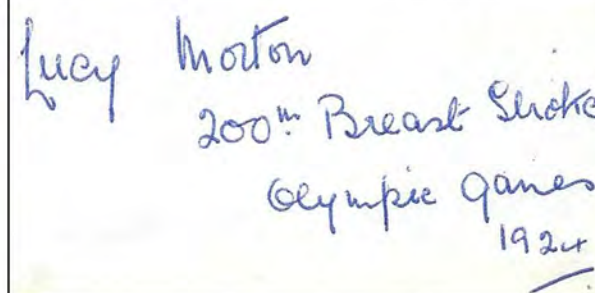 Lucy Morton
200m Breast Stroke
Olympic Games
1924